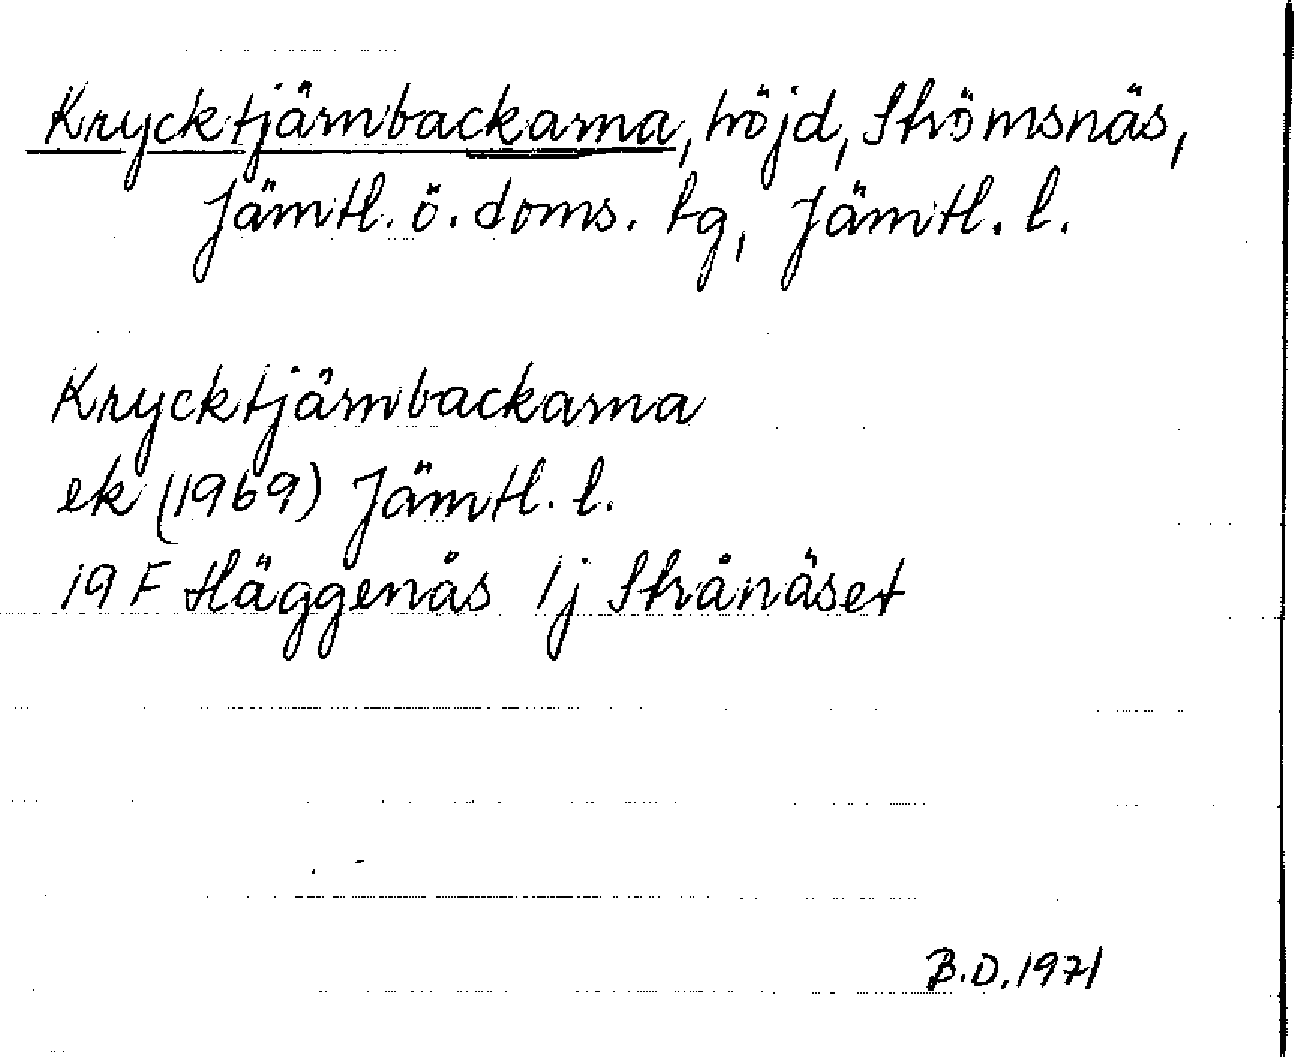 Krycktjärnbackarna, höjd, Strömsnäs,
Jämtl. ö. doms. tg, Jämtl. l.
Krycktjärnbackarna
ek (1969) Jämtl. l.
19 F Häggenås 1j Strånäset
B.D. 1971